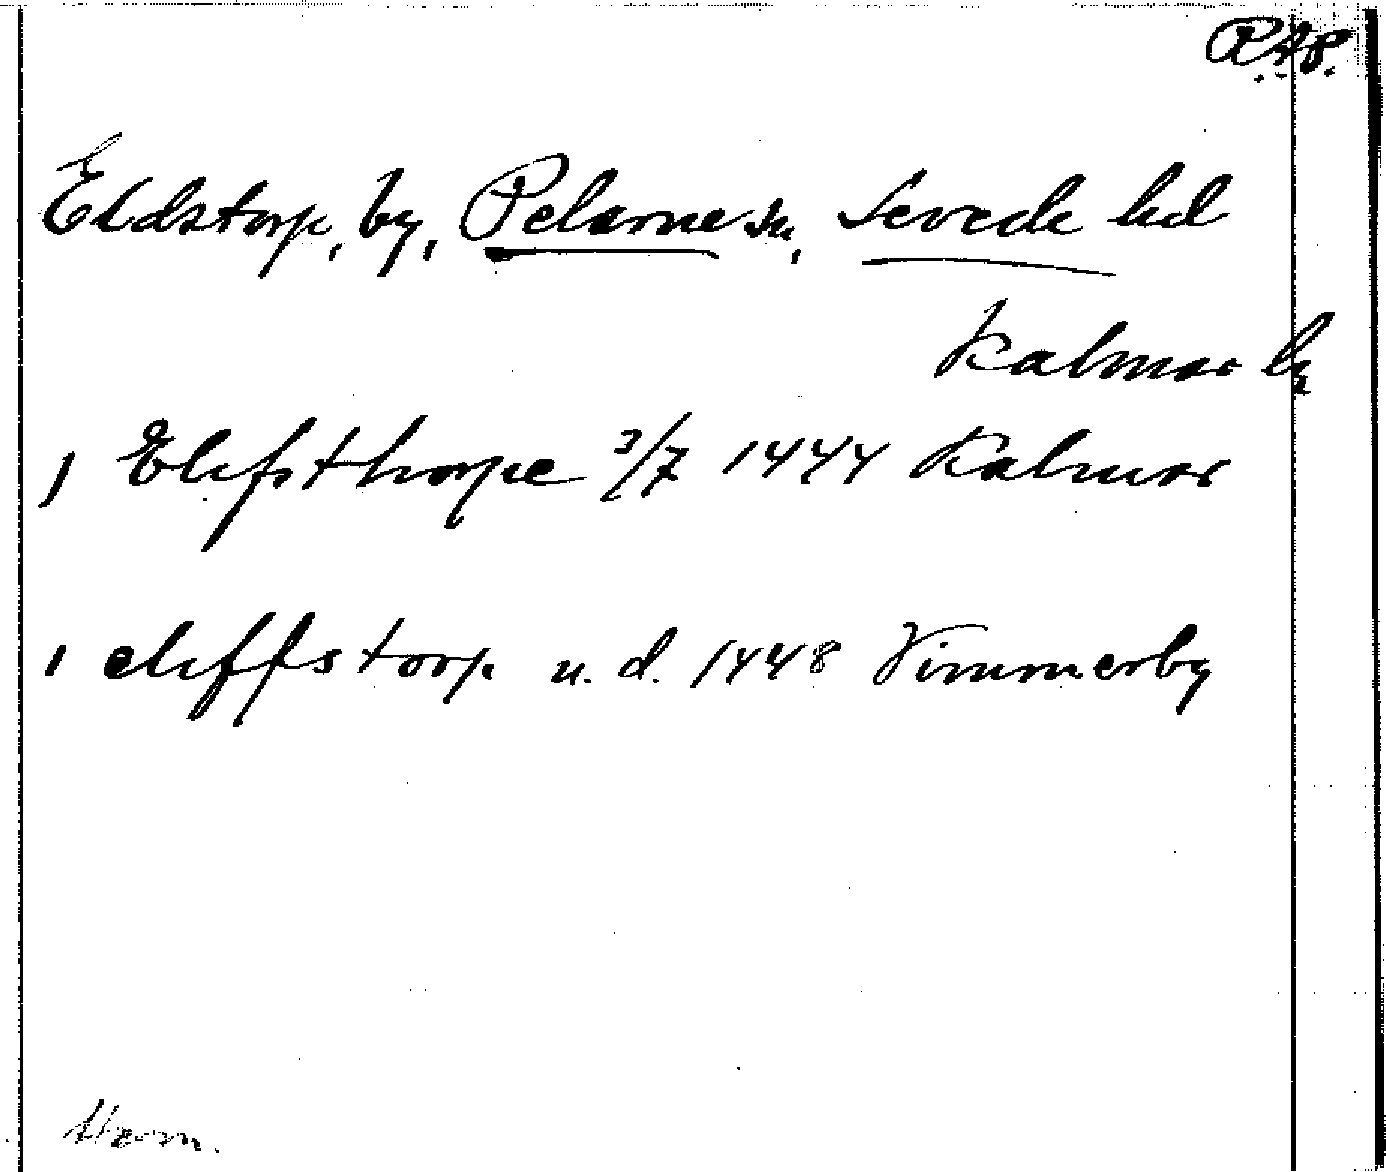 R.A.P.
Eldstorp, by, Pelarne sn, Sevede hd
Kalmar ln
1 Elifsthorpe 3/7 1444 Kalmar
1 eliffstorp u. d. 1448 Vimmerby